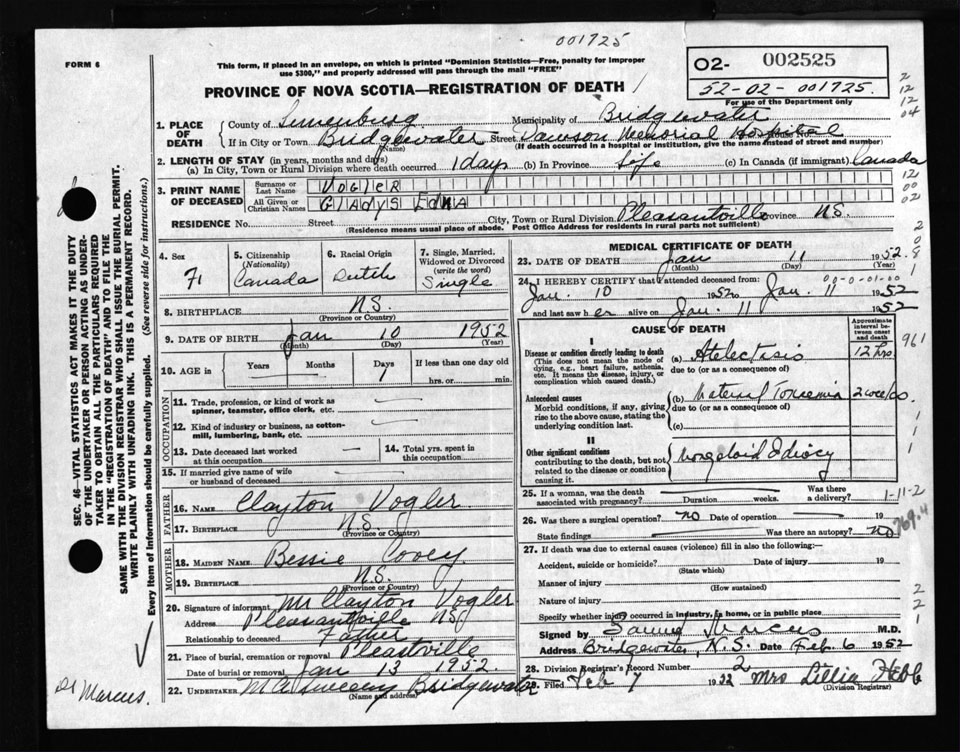 001725
FORM 6
This form, if placed in an envelope, on which is printed "Dominion Statistics—Free, penalty for improper
use $300," and properly addressed will pass through the mail "FREE"
O2- 002525
52-02-001725.
For use of the Department only
PROVINCE OF NOVA SCOTIA—REGISTRATION OF DEATH
1. PLACE OF DEATH
County of Lunenburg Municipality of Bridgewater
If in City or Town Bridgewater Street Dawson Memorial Hospital House No.
(Name) (If death occurred in a hospital or institution, give the name instead of street and number)
2. LENGTH OF STAY (in years, months and days)
(a) In City, Town or Rural Division where death occurred 1 days (b) In Province Life (c) In Canada (if immigrant) Canada
3. PRINT NAME OF DECEASED
Surname or Last Name VOGLER
All Given or Christian Names GLADYS EDNA
RESIDENCE No. Street City, Town or Rural Division Pleasantville Province N.S.
(Residence means usual place of abode. Post Office Address for residents in rural parts not sufficient)
4. Sex F
5. Citizenship (Nationality) Canada
6. Racial Origin Dutch
7. Single, Married, Widowed or Divorced (write the word) Single
8. BIRTHPLACE N.S.
(Province or Country)
9. DATE OF BIRTH Jan 10 1952
(Month) (Day) (Year)
10. AGE in Years Months Days 1 If less than one day old
hrs. or min.
OCCUPATION
11. Trade, profession, or kind of work as spinner, teamster, office clerk, etc. —
12. Kind of industry or business, as cotton-mill, lumbering, bank, etc. —
13. Date deceased last worked at this occupation —
14. Total yrs. spent in this occupation
15. If married give name of wife or husband of deceased —
FATHER
16. NAME Clayton Vogler
17. BIRTHPLACE N.S.
(Province or Country)
MOTHER
18. MAIDEN NAME Bessie
19. BIRTHPLACE N.S.
(Province or Country)
20. Signature of informant Mr Clayton Vogler
Address Pleasantville NS
Relationship to deceased Father
21. Place of burial, cremation or removal
Date of burial or removal Jan 13 1952.
22. UNDERTAKER Bridgewater
(Name and address)
MEDICAL CERTIFICATE OF DEATH
23. DATE OF DEATH Jan 11 1952
(Month) (Day) (Year)
24. I HEREBY CERTIFY that I attended deceased from:
Jan. 10 1952 to Jan. 11 1952
and last saw her alive on Jan. 11 1952
CAUSE OF DEATH
Approximate interval between onset and death
I
Disease or condition directly leading to death (a) Atelectasis 12 hrs.
(This does not mean the mode of dying, e.g., heart failure, asthenia, etc. It means the disease, injury, or complication which caused death.)
due to (or as a consequence of)
Antecedent causes (b) Maternal Toxemia 2 weeks
Morbid conditions, if any, giving rise to the above cause, stating the underlying condition last.
due to (or as a consequence of)
(c)
II
Other significant conditions Mongoloid Idiocy
contributing to the death, but not related to the disease or condition causing it.
961
25. If a woman, was the death associated with pregnancy? Duration weeks. Was there a delivery?
1-11-2
26. Was there a surgical operation? no Date of operation 19
State findings Was there an autopsy? no
769.4
27. If death was due to external causes (violence) fill in also the following:—
Accident, suicide or homicide? Date of injury 19
(State which)
Manner of injury
(How sustained)
Nature of injury
Specify whether injury occurred in industry, in home, or in public place
Signed by Marcus M.D.
Address Bridgewater, N.S. Date Feb. 6 1952
28. Division Registrar's Record Number 2
29. Filed Feb 7 Mrs Lillia Hebb
(Division Registrar)
SEC. 46—VITAL STATISTICS ACT MAKES IT THE DUTY
OF THE UNDERTAKER OR PERSON ACTING AS UNDER-
TAKER TO OBTAIN ALL THE PARTICULARS REQUIRED
IN THE "REGISTRATION OF DEATH" AND TO FILE THE
SAME WITH THE DIVISION REGISTRAR WHO SHALL ISSUE THE BURIAL PERMIT.
WRITE PLAINLY WITH UNFADING INK. THIS IS A PERMANENT RECORD.
Every item of information should be carefully supplied. (See reverse side for instructions.)
Dr Marcus.